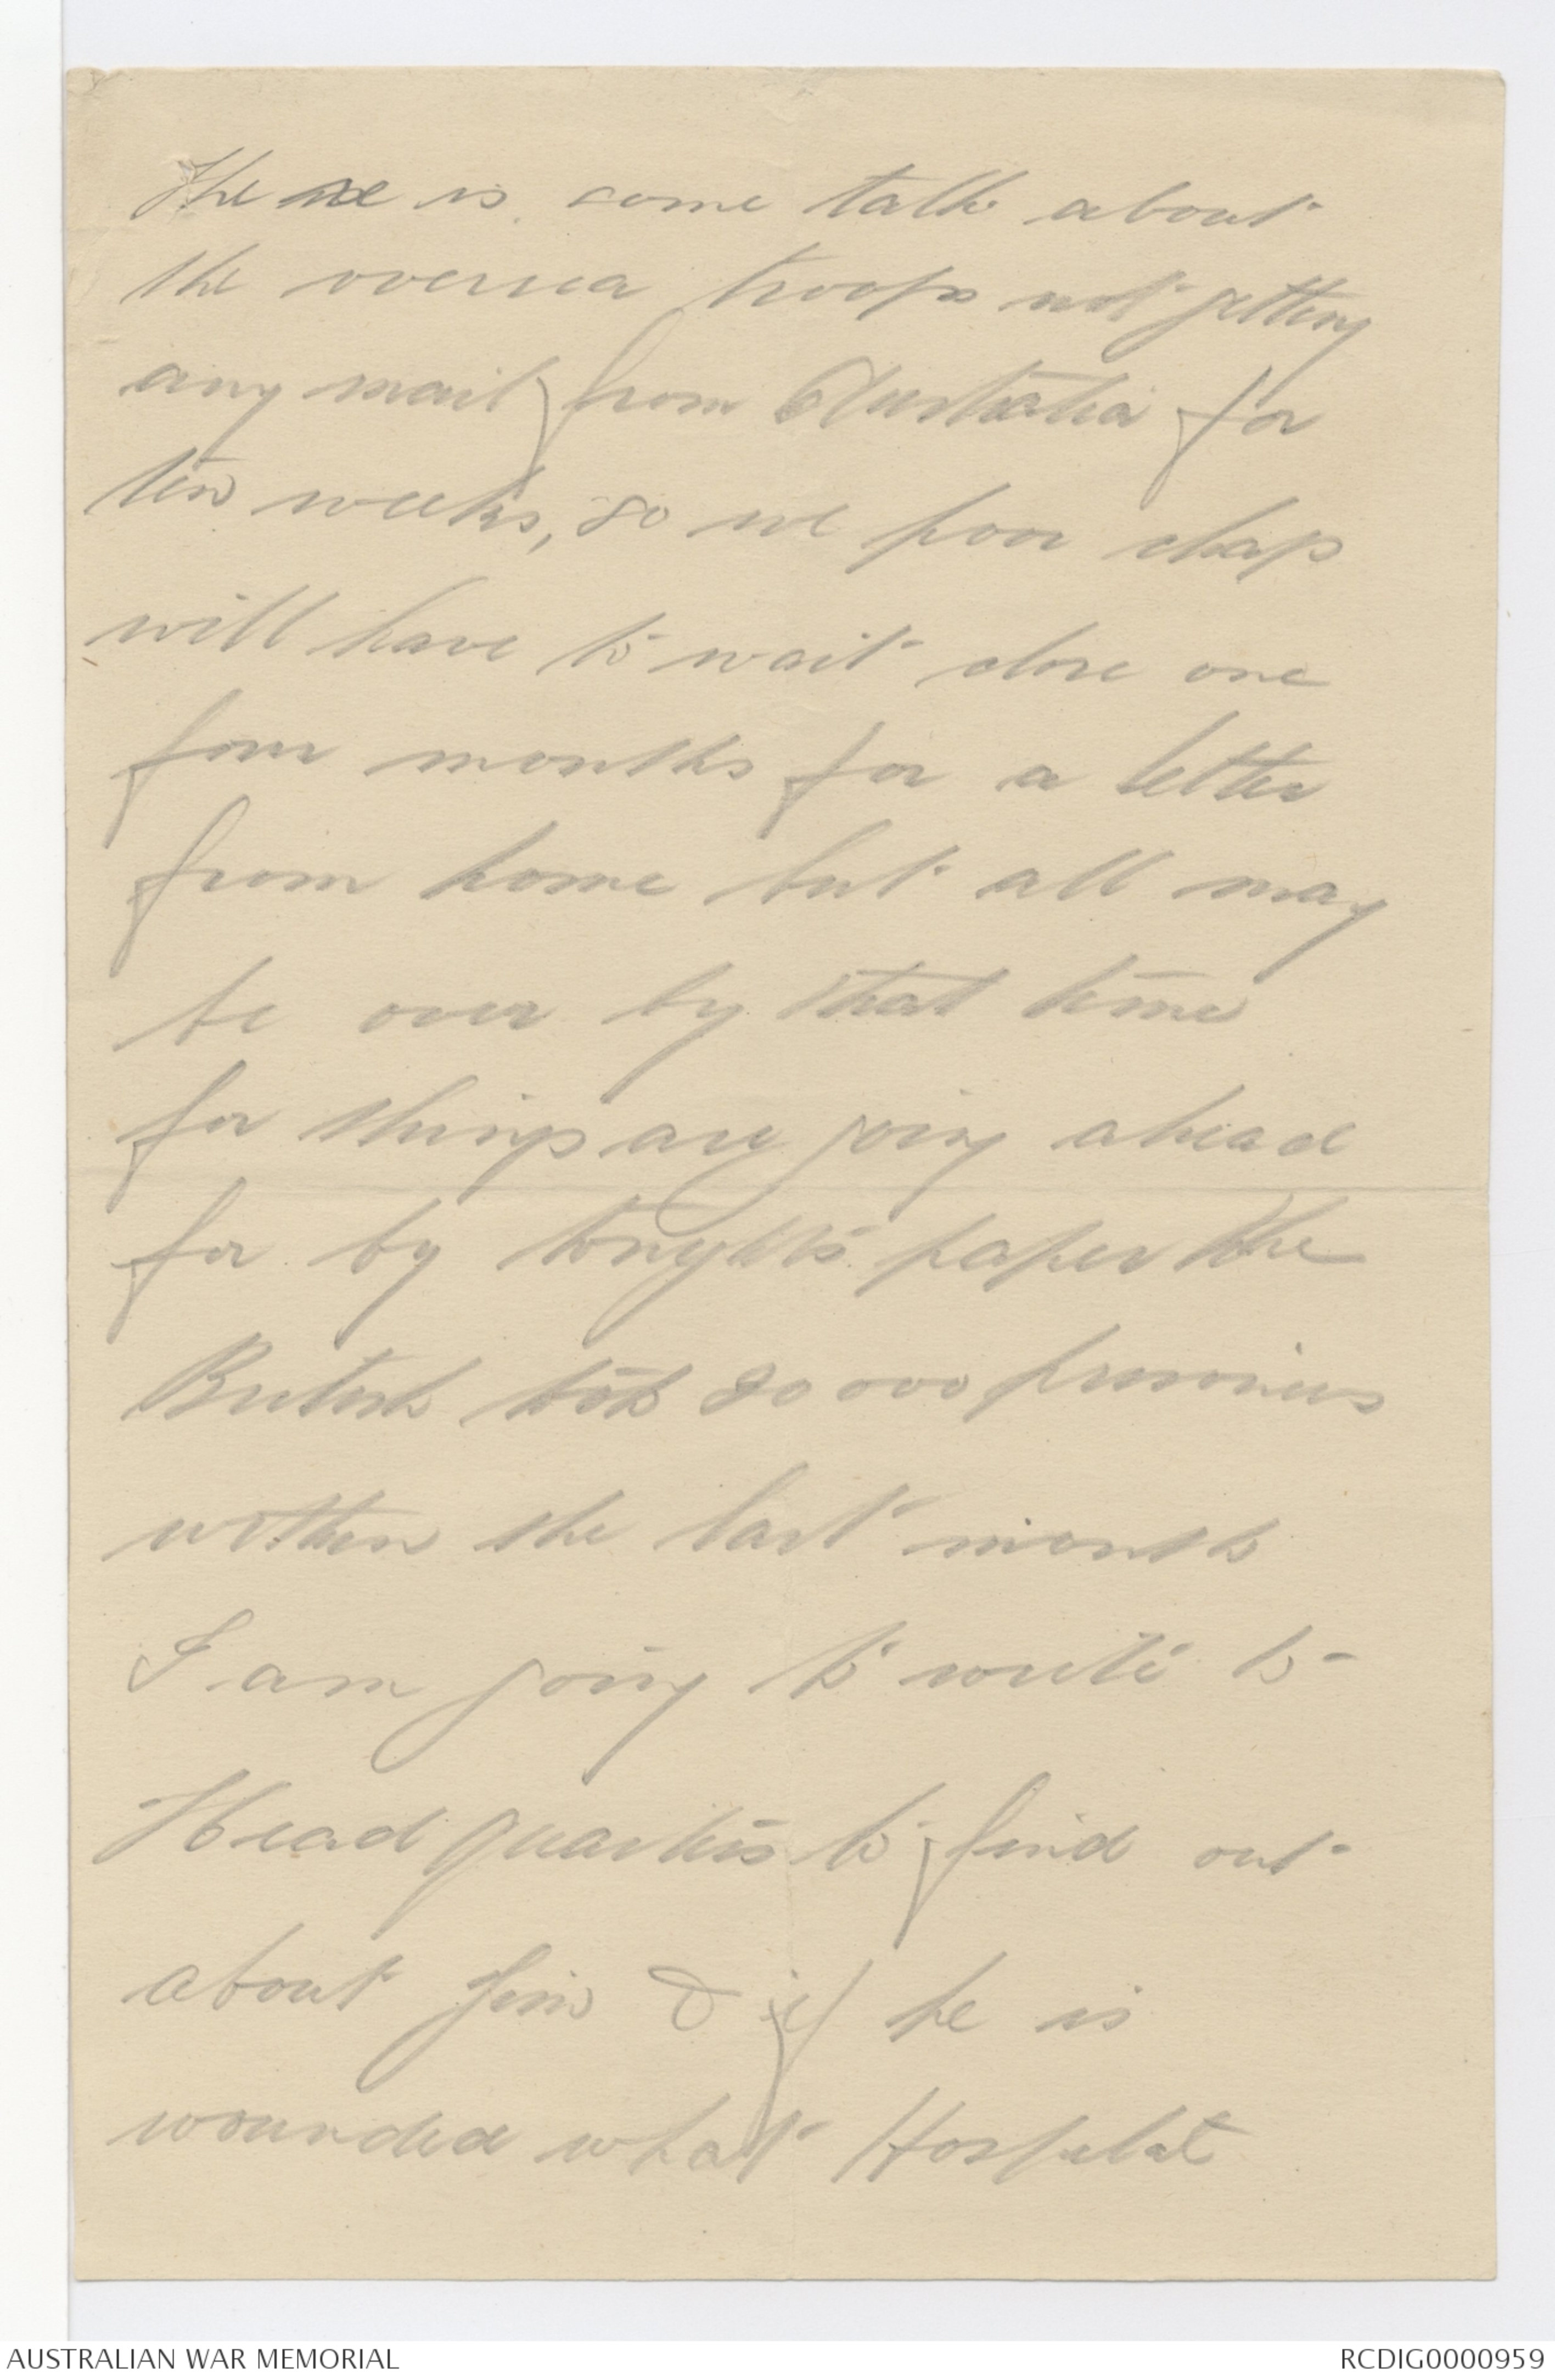 There is some talk about
the oversea troops not getting
any mail from Australia for
ten weeks, so we poor chaps
will have to wait close one
four months for a letter
from home but all may
be over by that time
for things are going ahead
for by tonights paper the
British took 000 prisoners
within the last month
I am going to write to
Head quarters to find out
about Jim & if he is
wounded what Hospital
AUSTRALIAN WAR MEMORIAL
RCDIG0000959